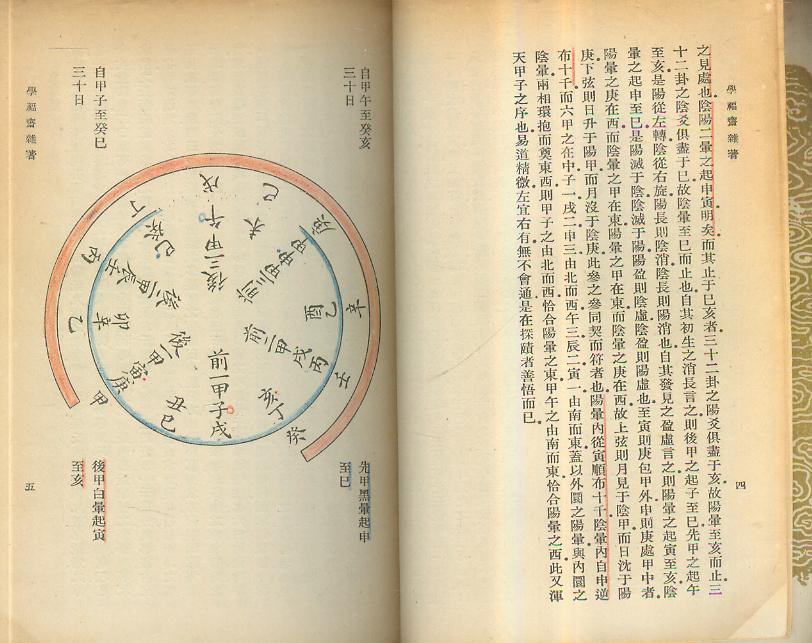 學福齋雜著
四
之見處也陰陽二暈之起申寅明矣而其止于巳亥者三十二卦之陽爻俱盡于亥故陽暈至亥而止三
十二卦之陰爻俱盡于巳故陰暈至巳而止也自其初生之消長言之則後甲之起子至巳先甲之起午
至亥是陽從左轉陰從右旋陽長則陰消陰長則陽消也自其發見之盈虛言之則陽暈之起寅至亥陰
暈之起申至巳是陽減于陰陰減于陽陽盈則陰虛陰盈則陽虛也至寅則庚包甲外申則庚處甲中者
陽暈之庚在西而陰暈之甲在東陽暈之甲在東而陰暈之庚在西故上弦則月見于陰甲而日沈于陽
庚下弦則日升于陽甲而月沒于陰庚此參之參同契而符者也陽暈內從寅順布十千陰暈內自申逆
布十千而六甲之在中子一戌二申三由北而西午三辰二寅一由南而東蓋以外圜之陽暈與內圜之
陰暈兩相環抱而奠東西則甲子之由北而西恰合陽暈之東甲午之由南而東恰合陽暈之西此又渾
天甲子之序也易道精微左宜右有無不會通是在探賾者善悟而已
自甲午至癸亥
三十日
先甲黑暈起申
至巳
戊
己
庚
辛
壬
癸
丁
丙
乙
甲
後三甲午
未
前三甲申
酉
乙
前二甲戌
丙
亥
丁
前一甲子
戊
丑
己
後一甲寅
庚
卯
辛
後二甲辰
壬
巳
癸
自甲子至癸巳
三十日
後甲白暈起寅
至亥
學福齋雜著
五